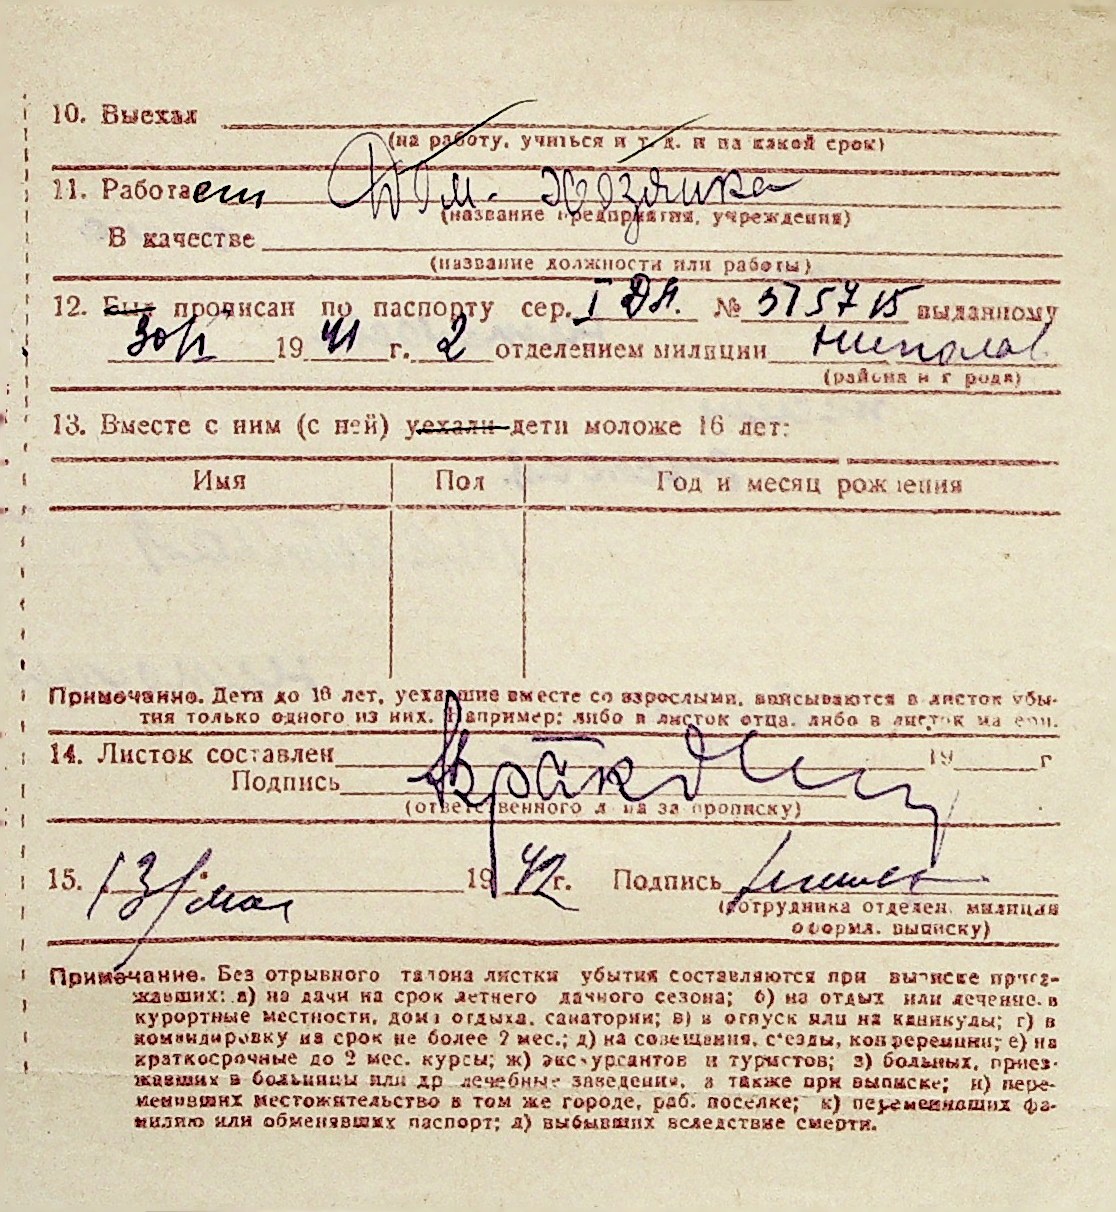 10. Выехал
(на работу, учиться и т. д. и на какой срок)
11. Работает Дом. хозяйка
(название предприятия, учреждения)
В качестве
(название должности или работы)
12. Был прописан по паспорту сер. I ДЛ. № 575715 выданному
30/I 1941 г. 2 отделением милиции
(района и города)
13. Вместе с ним (с ней) уехали дети моложе 16 лет:
Имя Пол Год и месяц рождения
Примечание. Дети до 16 лет, уехавшие вместе со взрослыми, вписываются в листок убы-
тия только одного из них. Например: либо в листок отца, либо в листок матери.
14. Листок составлен 19 г
Подпись
(ответственного лица за прописку)
15. 13/мая 1942 г. Подпись
(сотрудника отделен. милиции
оформл. выписку)
Примечание. Без отрывного талона листки убытия составляются при выписке приез-
жавших: а) на дачи на срок летнего дачного сезона; б) на отдых или лечение в
курортные местности, дома отдыха, санатории; в) в отпуск или на каникулы; г) в
командировку на срок не более 2 мес.; д) на совещания, съезды, конференции; е) на
краткосрочные до 2 мес. курсы; ж) экскурсантов и туристов; з) больных, приез-
жавших в больницы или др лечебные заведения, а также при выписке; и) пере-
менивших местожительство в том же городе, раб. поселке; к) переменивших фа-
милию или обменявших паспорт; л) выбывших вследствие смерти.